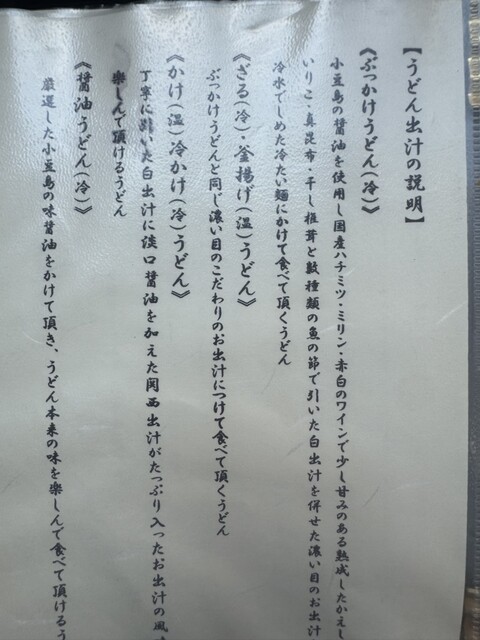 【うどん出汁の説明】
《ぶっかけうどん(冷)》
小豆島の醤油を使用し国産ハチミツ・ミリン・赤白のワインで少し甘みのある熟成したかえし
いりこ・真昆布・干し椎茸と数種類の魚の節で引いた白出汁を併せた濃い目のお出汁
冷水でしめた冷たい麺にかけて食べて頂くうどん
《ざる(冷)・釜揚げ(温)うどん》
ぶっかけうどんと同じ濃い目のこだわりのお出汁につけて食べて頂くうどん
《かけ(温)冷かけ(冷)うどん》
丁寧に引いた白出汁に淡口醤油を加えた関西出汁がたっぷり入ったお出汁の風
楽しんで頂けるうどん
《醤油うどん(冷)》
厳選した小豆島の味醤油をかけて頂き、うどん本来の味を楽しんで食べて頂けるう